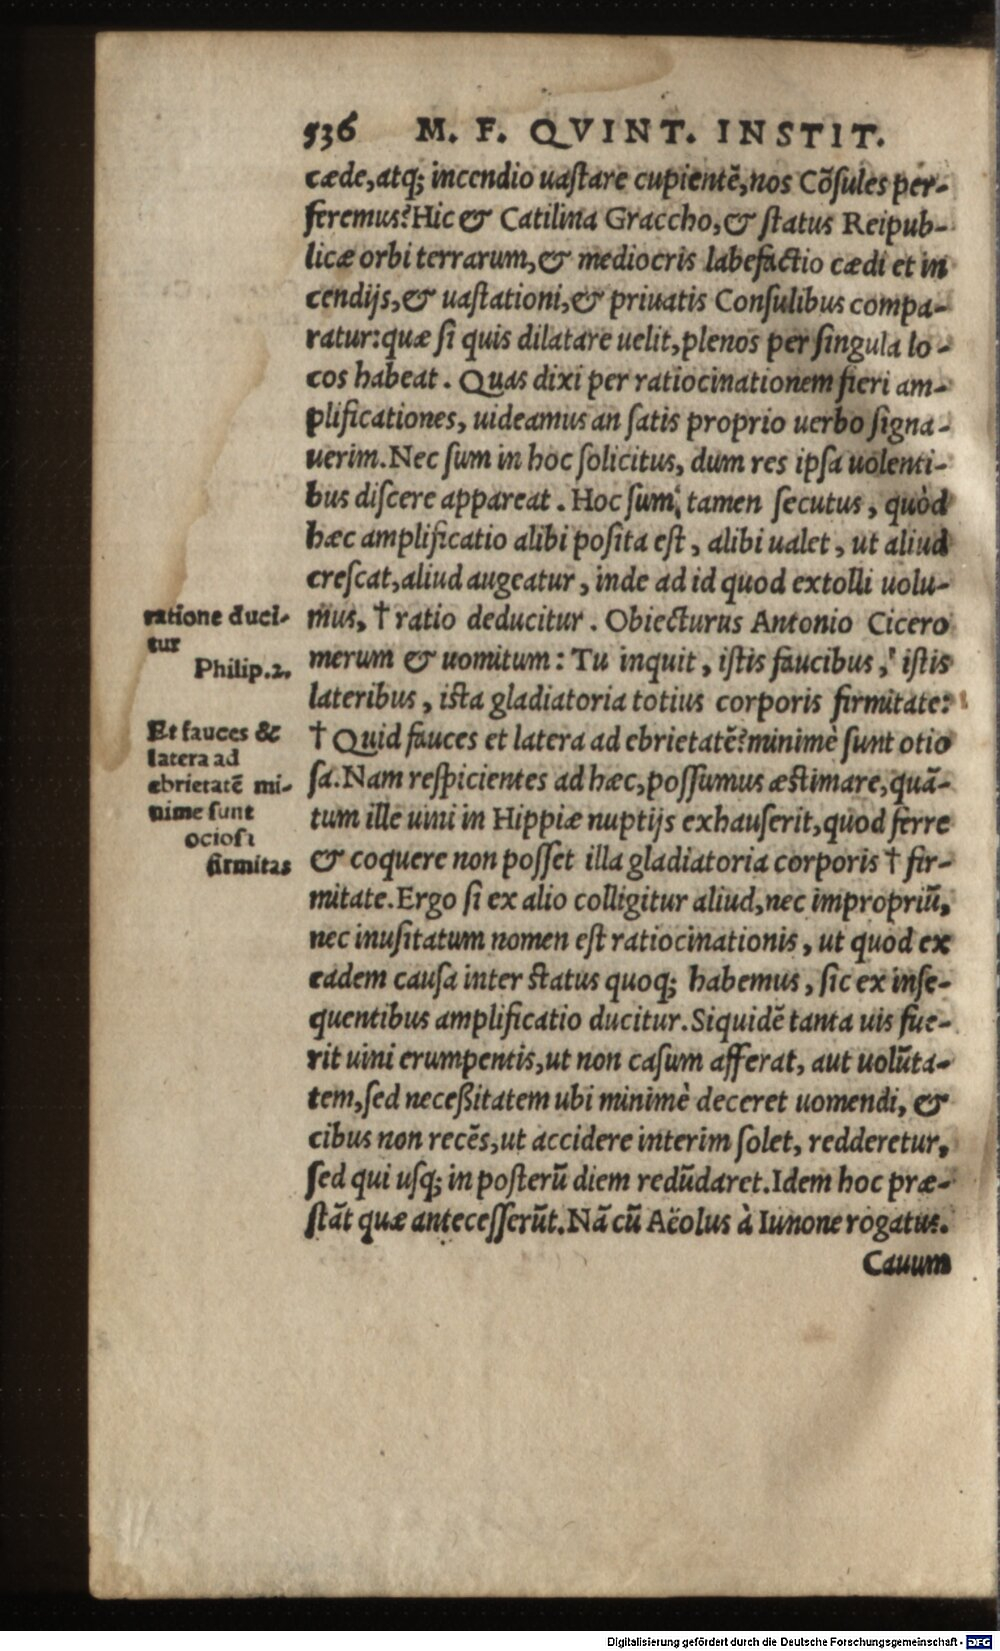 536 M. F. QVINT. INSTIT.
cæde, atq; incendio uaſtare cupientẽ, nos Cõſules per-
feremus? Hic & Catilina Graccho, & ſtatus Reipub-
licæ orbi terrarum, & mediocris labefactio cædi et in
cendijs, & uaſtationi, & priuatis Conſulibus compa-
ratur: quæ ſi quis dilatare uelit, plenos per ſingula lo-
cos habeat. Quas dixi per ratiocinationem fieri am-
plificationes, uideamus an ſatis proprio uerbo ſigna-
uerim. Nec ſum in hoc ſolicitus, dum res ipſa uolenti-
bus diſcere appareat. Hoc ſum, tamen ſecutus, quòd
hæc amplificatio alibi poſita eſt, alibi ualet, ut aliud
creſcat, aliud augeatur, inde ad id quod extolli uolu-
mus, † ratio deducitur. Obiecturus Antonio Cicero
merum & uomitum: Tu inquit, iſtis faucibus, iſtis
lateribus, iſta gladiatoria totius corporis firmitate:
† Quid fauces et latera ad ebrietatẽ? minimè ſunt otio
ſa. Nam reſpicientes ad hæc, poſſumus æſtimare, quã-
tum ille uini in Hippiæ nuptijs exhauſerit, quod ferre
& coquere non poſſet illa gladiatoria corporis † fir-
mitate. Ergo ſi ex alio colligitur aliud, nec impropriũ,
nec inuſitatum nomen eſt ratiocinationis, ut quod ex
eadem cauſa inter ſtatus quoq; habemus, ſic ex inſe-
quentibus amplificatio ducitur. Siquidẽ tanta uis fue-
rit uini erumpentis, ut non caſum afferat, aut uolũta-
tem, ſed neceßitatem ubi minimè deceret uomendi, &
cibus non recẽs, ut accidere interim ſolet, redderetur,
ſed qui uſq; in poſterũ diem redũdaret. Idem hoc præ-
ſtãt quæ anteceſſerũt. Nã cũ Aëolus à Iunone rogatus.
Cauum
ratione duci-
tur
Philip. 2.
Et fauces &
latera ad
ebrietatẽ mi-
nime ſunt
ocioſi
firmitas
Digitalisierung gefördert durch die Deutsche Forschungsgemeinschaft - DFG